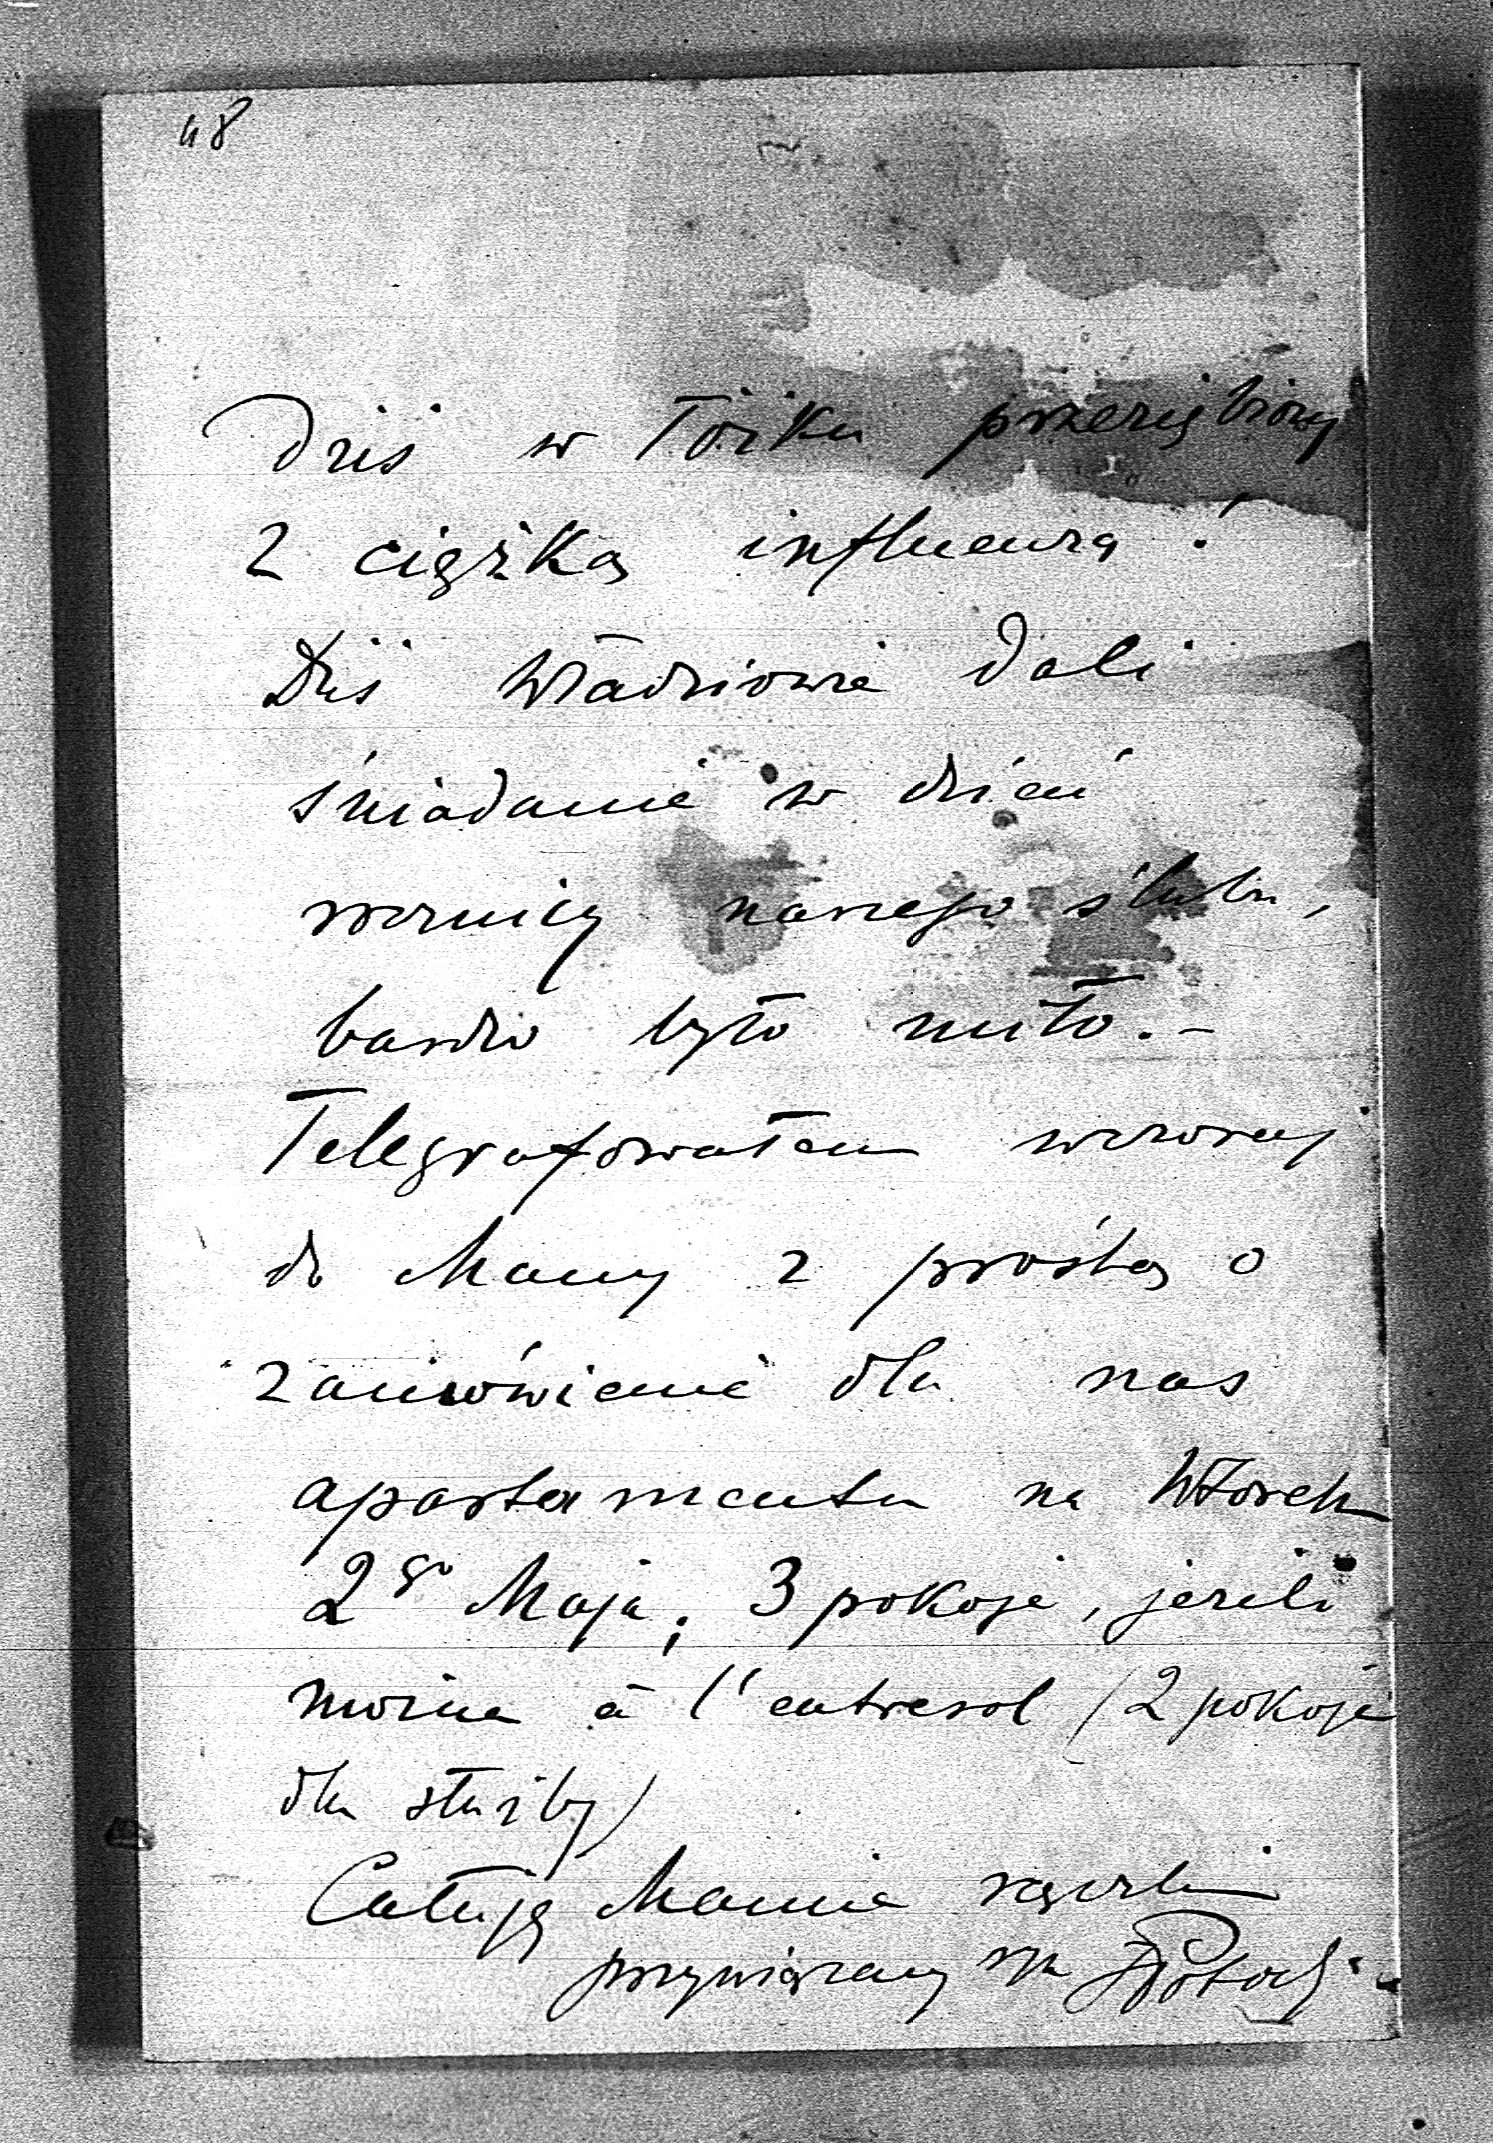 48
Dziś w łóżku przeziębiony
z ciężką influenzą!
Dziś Władziowie dali
śniadanie w dzień
rocznicy naszego ślubu,
bardzo było miło. –
Telegrafowałem wczoraj
do Mamy z prośbą o
zamówienie dla nas
apartamentu na Wtorek
2go Maja; 3 pokoje, jeżeli
można à l'entresol (2 pokoje
dla służby)
Całuję Mamie rączki
przywiązany syn Potocki